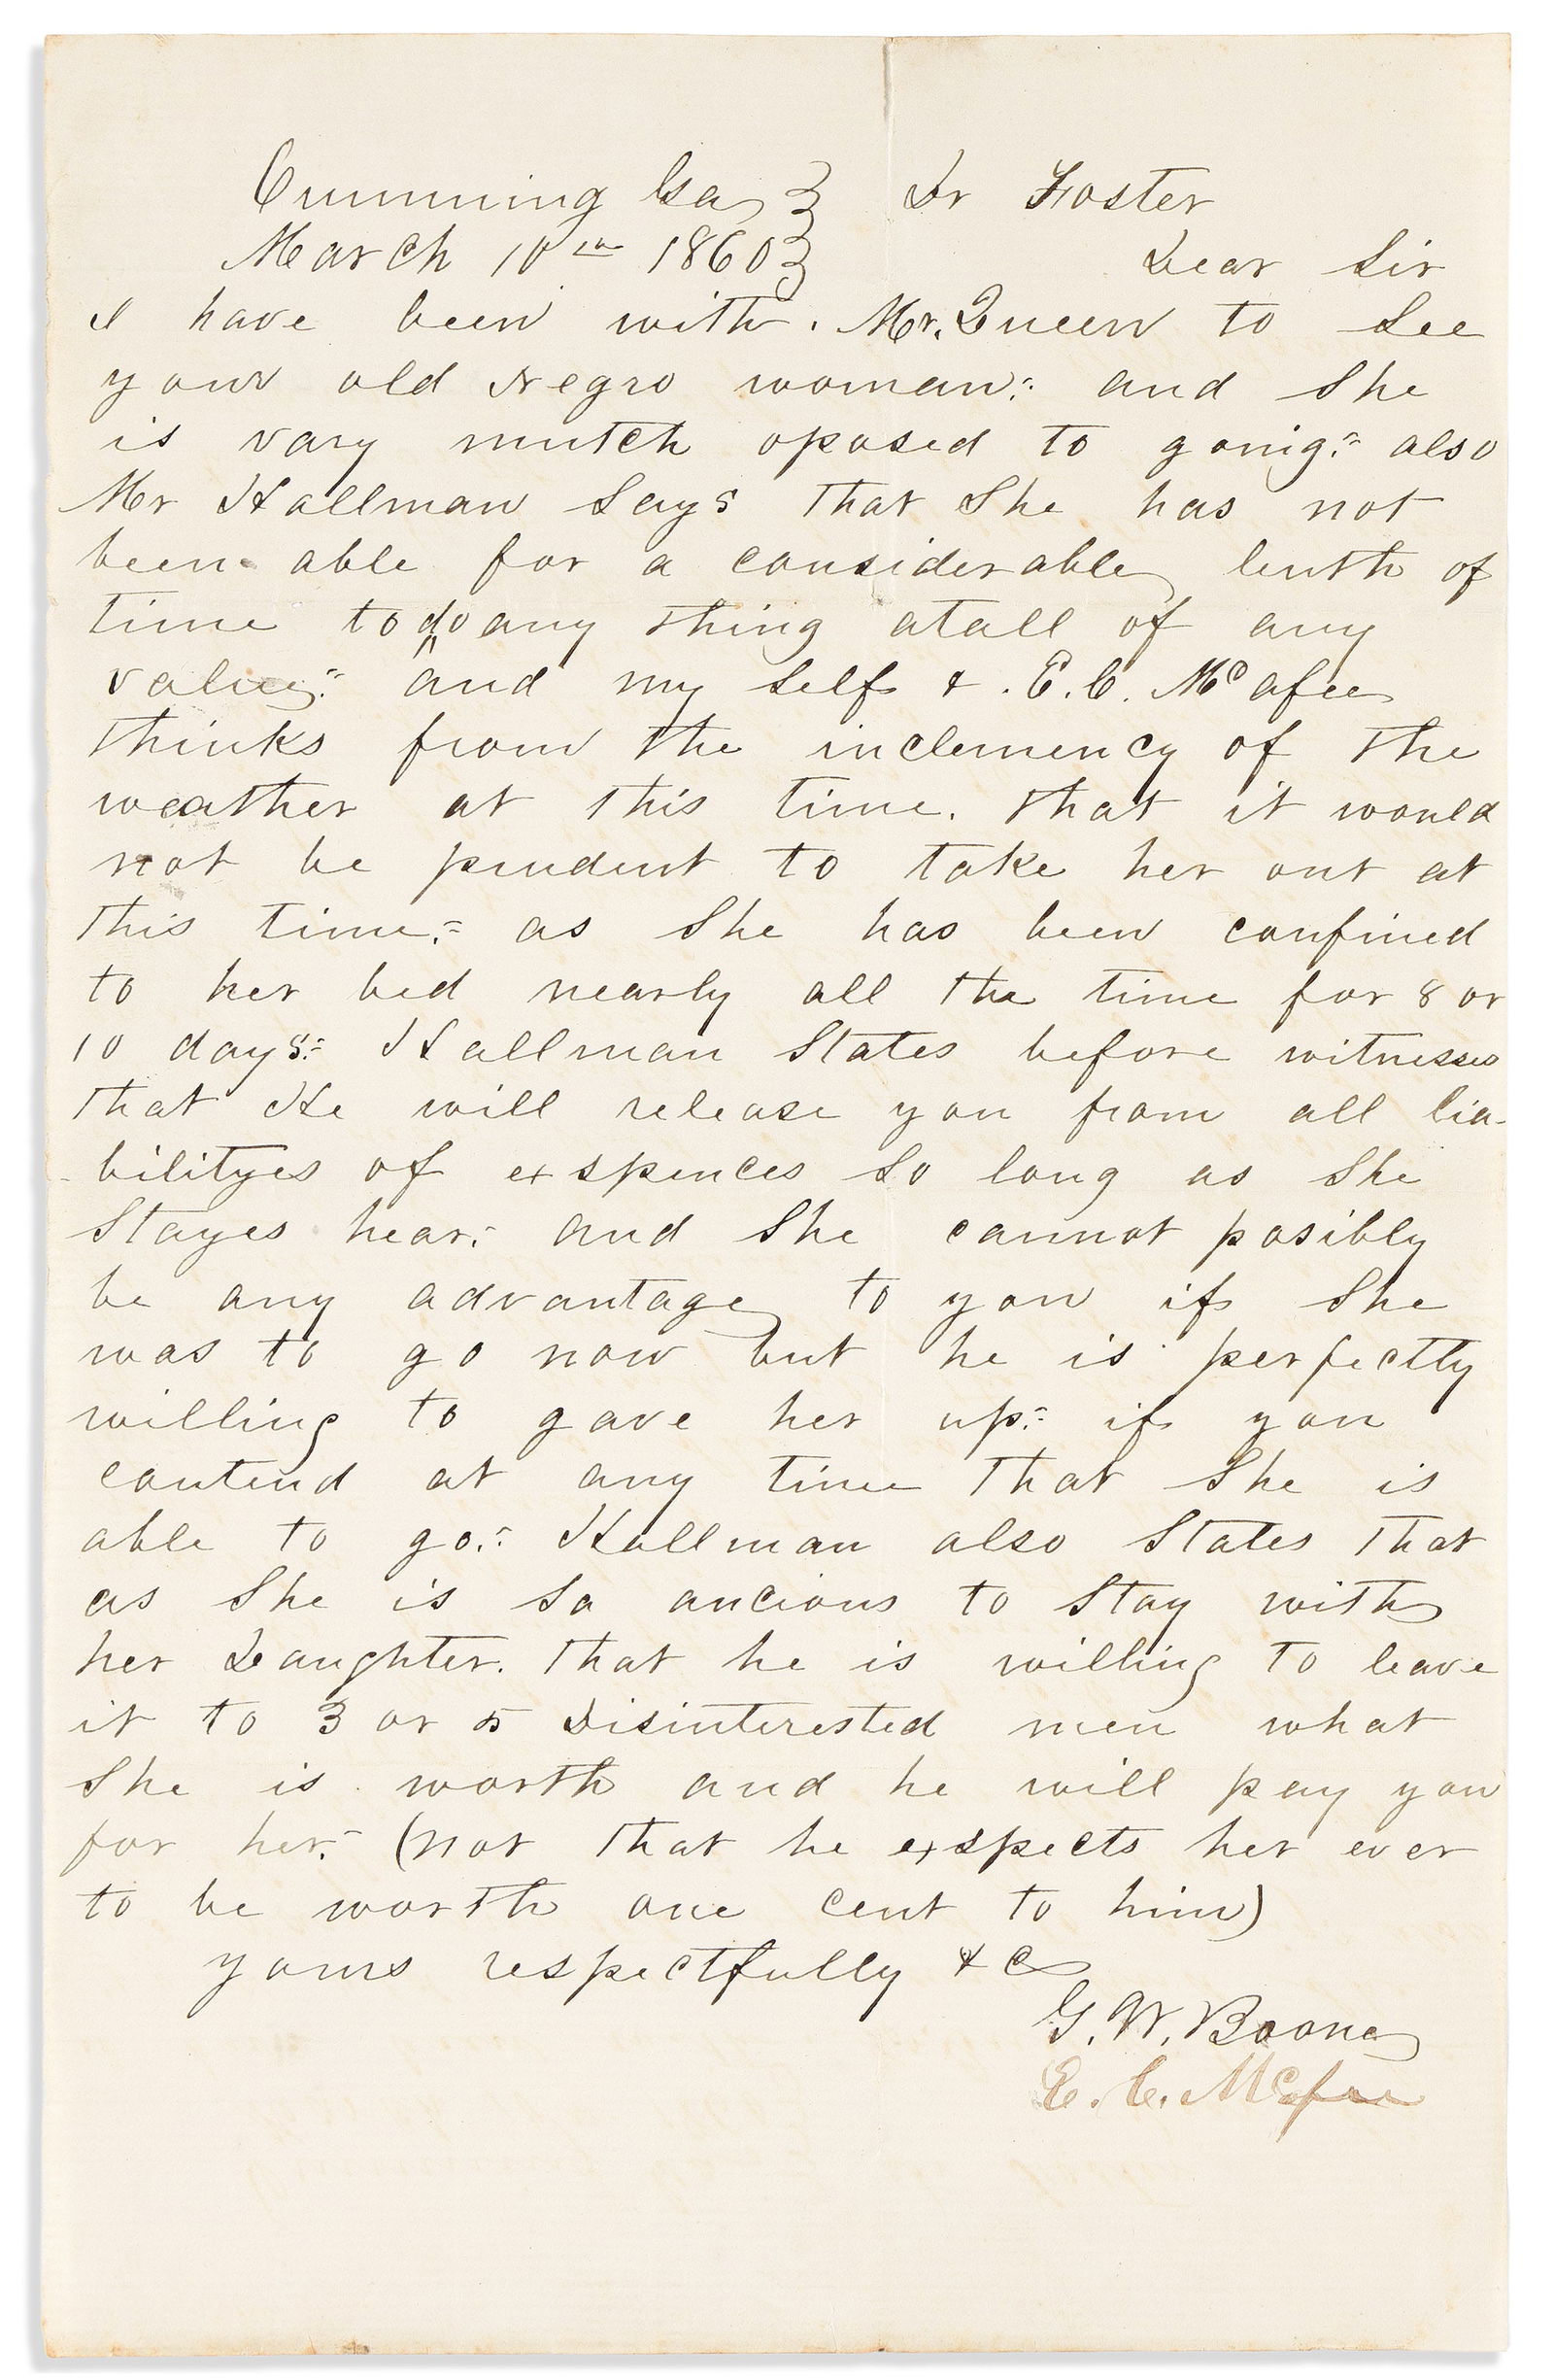 Cumming Ga } Dr Foster
March 10th 1860 } Dear Sir
I have been with. Mr. Queen to See
your old Negro woman:- and She
is vary mutch oposed to going:- also
Mr Hallman Says that She has not
been able for a considerable lenth of
time to do any thing atall of any
value:- and my Self & . E. C. McAfee
thinks from the inclemency of the
weather at this time. that it would
not be prudent to take her out at
this time:- as She has been confined
to her bed nearly all the time for 8 or
10 days:- Hallman States before witnesses
that He will release you from all lia-
-bilityes of exspences So long as She
Stayes hear:- and She cannot posibly
be any advantage to you if She
was to go now but he is perfectly
willing to gave her up:- if you
contend at any time that She is
able to go:- Hallman also States that
as She is So ancious to Stay with
her Daughter. that he is willing to leave
it to 3 or 5 Disinterested men what
She is worth and he will pay you
for her:- (not that he exspects her ever
to be worth one cent to him)
yours respectfully &c
G. W. Boone
E. C. McAfee